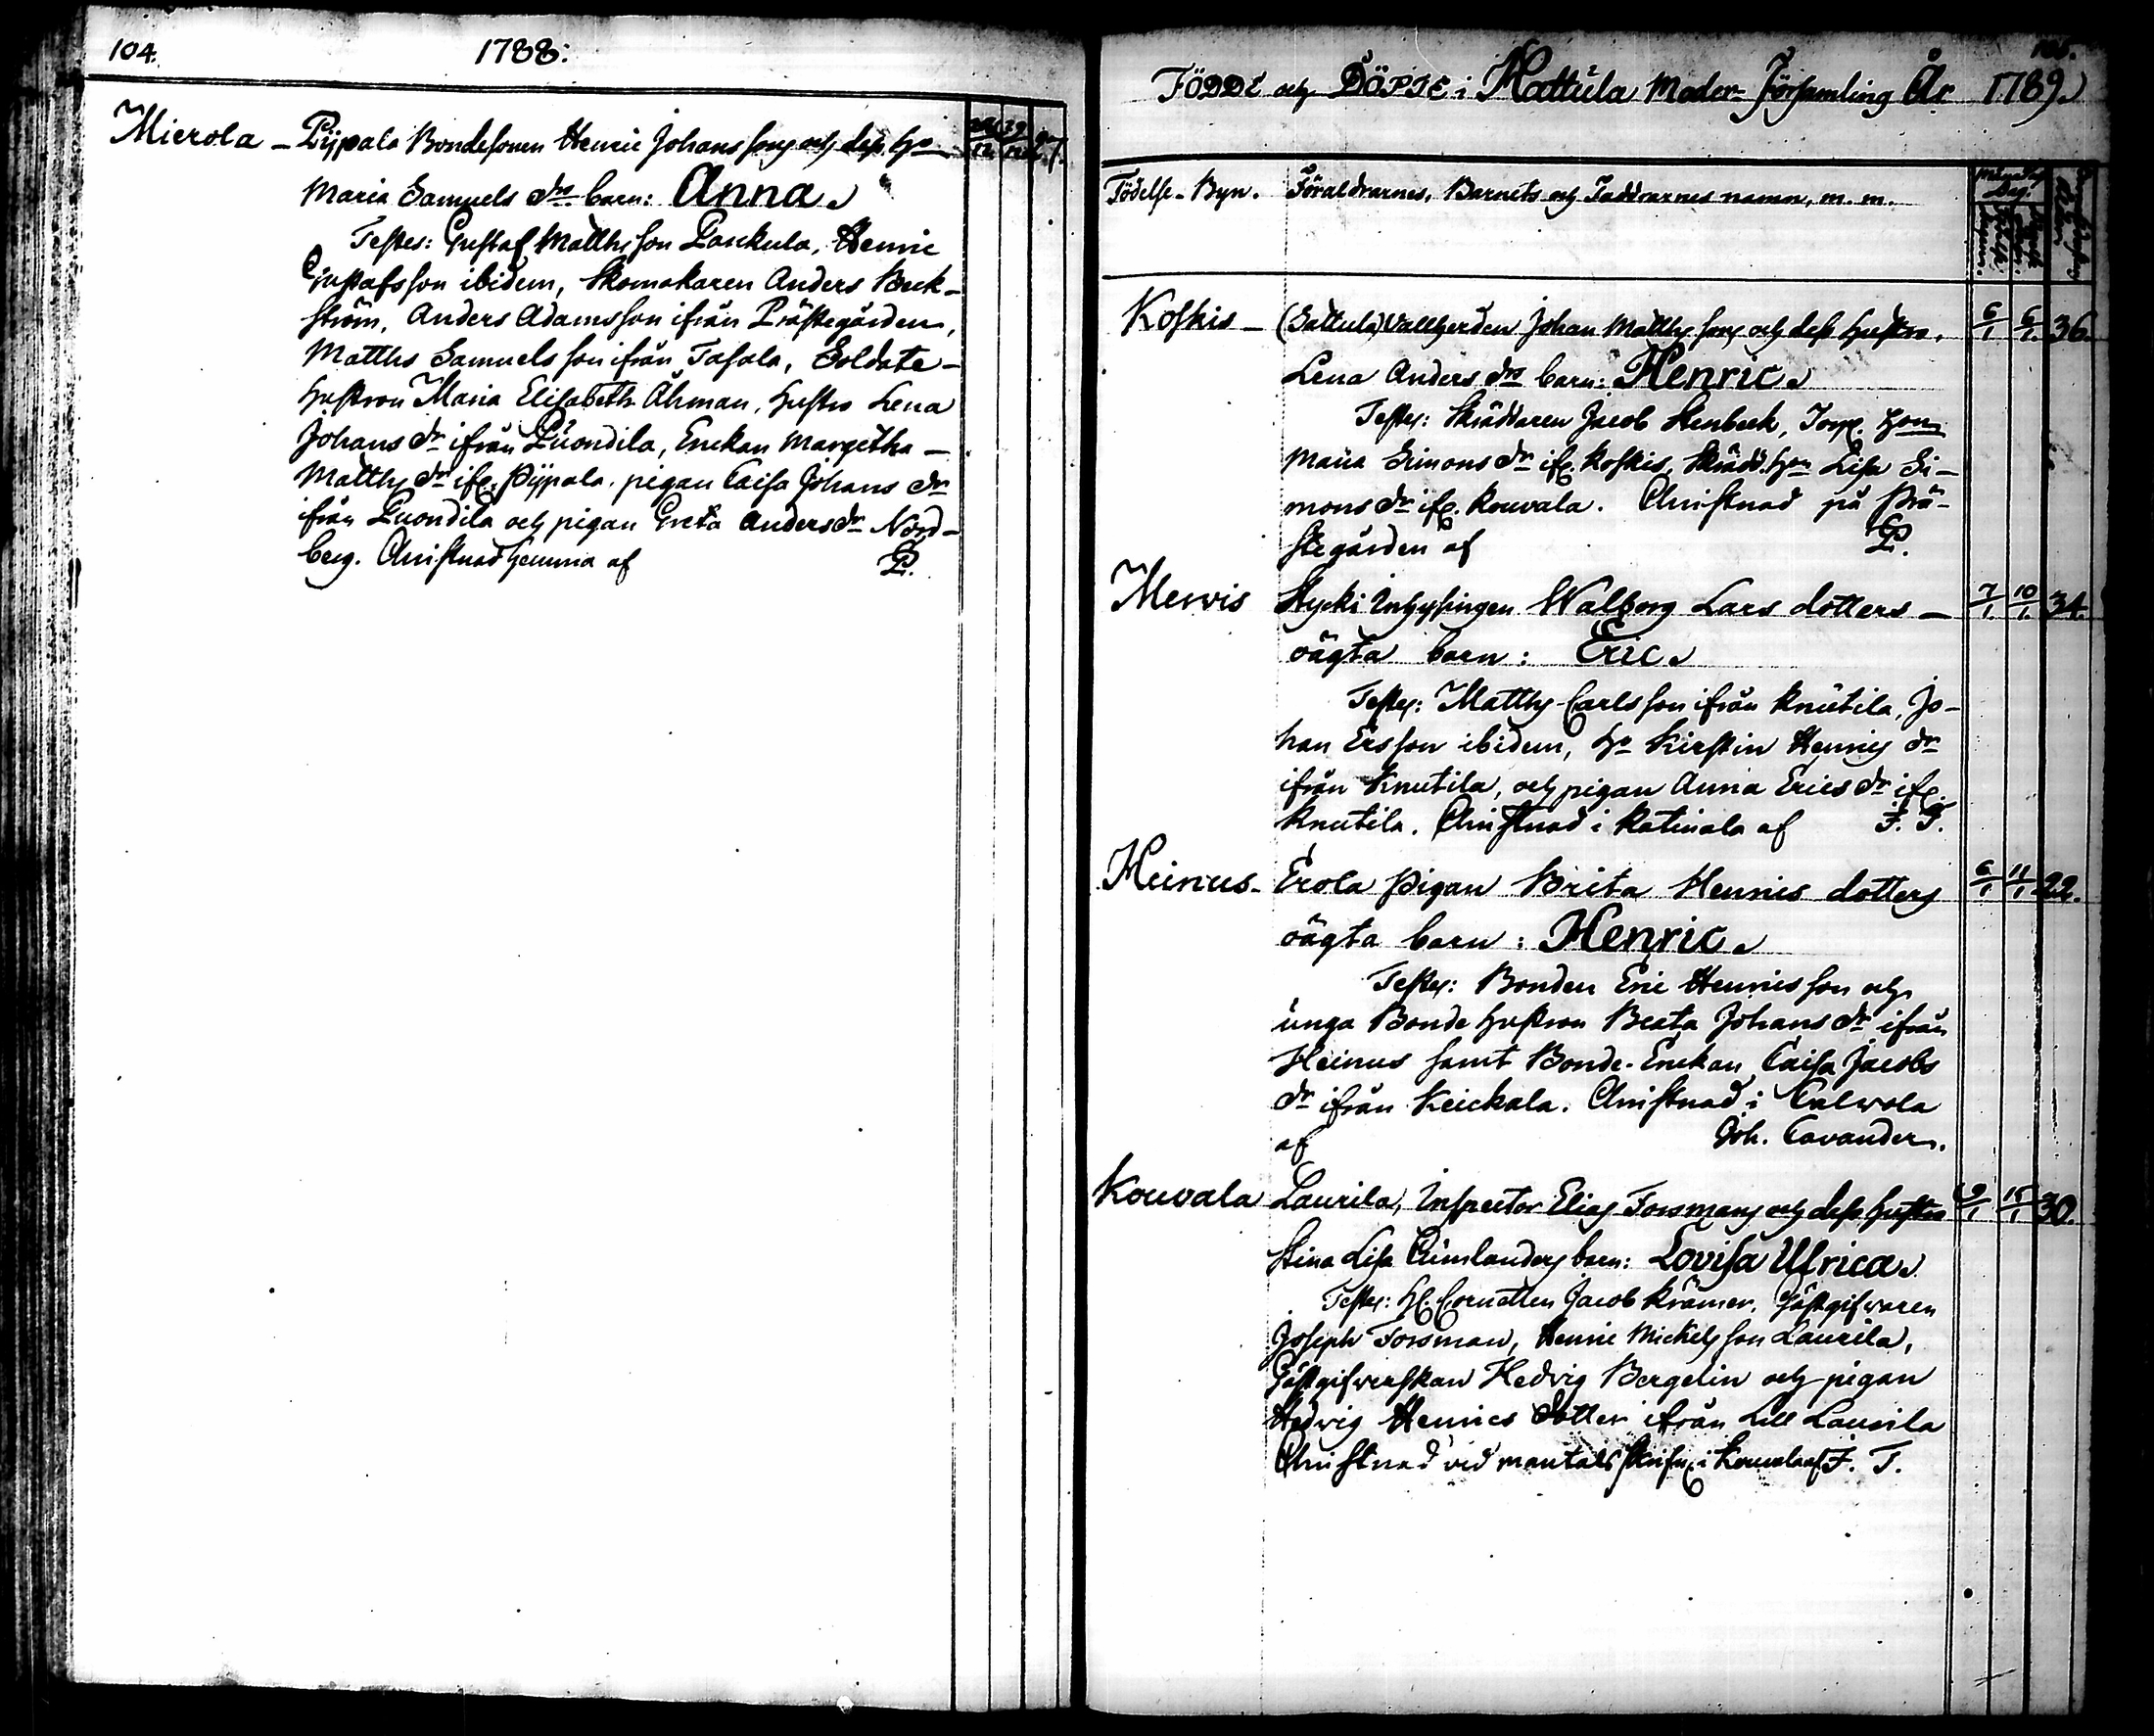 104. 1788:
Mierola – Pijpala Bondesonen Henric Johanssons och dess Hu
Maria Samuels drs barn: Anna.
Testes: Gustaf Matthsson Pankula, Henric
Gustafsson ibidem, Skomakaren Anders Beck-
ström, Anders Adamsson ifrån Prästegården,
Matths Samuelsson ifrån Tasala, Soldate-
hustron Maria Elisabeth Åhman, hustro Lena
Johans dr ifrån Luondila, Enckan Margetha –
Matths dr ifr. Pijpala, pigan Caisa Johans dr
ifrån Luondila och pigan Greta Anders dr Nord-
berg. Christnad hemma af P.
105.
FÖDDE och DÖPTE i Hattula Moder-Församling År 1789.
Födelse-Byn. Föräldrarnes, Barnets och Faddrarnes namn, m. m.
Koskis – (Sattula) Vallherden Johan Matths sons och dess hustro 6/1 6/1 36.
Lena Anders drs barn: Henric.
Testes: Skräddaren Jacob Stenbeck, Torp. hon
Maria Simons dr ifr. Koskis, Skrädd. hon Lisa Si-
mons dr ifr. Kouvala. Christnad på Prä-
stegården af P.
Mervis Stycki Inhysingen Walborg Lars dotters – 7/1 10/1 34.
oägta barn: Eric.
Testes: Matths Carlsson ifrån Knutila, Jo-
han Ersson ibidem, Hu Kirstin Henrics dr
ifrån Knutila, och pigan Anna Erics dr ifr.
Knutila. Christnad i Katinala af F. T.
Heinus – Erola Pigan Brita Henrics dotters 6/1 11/1 22.
oägta barn: Henric.
Testes: Bonden Eric Henricsson och
unga Bonde hustron Beata Johans dr ifrån
Heinus samt Bonde-Enckan Caisa Jacobs
dr ifrån Keickala. Christnad i Calvola
af Joh. Cavander.
Kouvala Laurila, Inspector Elias Forsmans och dess hustro 9/1 15/1 30.
Stina Lisa barn: Lovisa Ulrica.
Testes: H. Cornetten Jacob Krämer, Gästgifvaren
Joseph Forsman, Henric Mickelsson Laurila,
Gästgifverskan Hedvig Bergelin och pigan
Hedvig Henrics dotter ifrån Lill Laurila
Christnad vid mantals skrifn. i Kouvala af F. T.